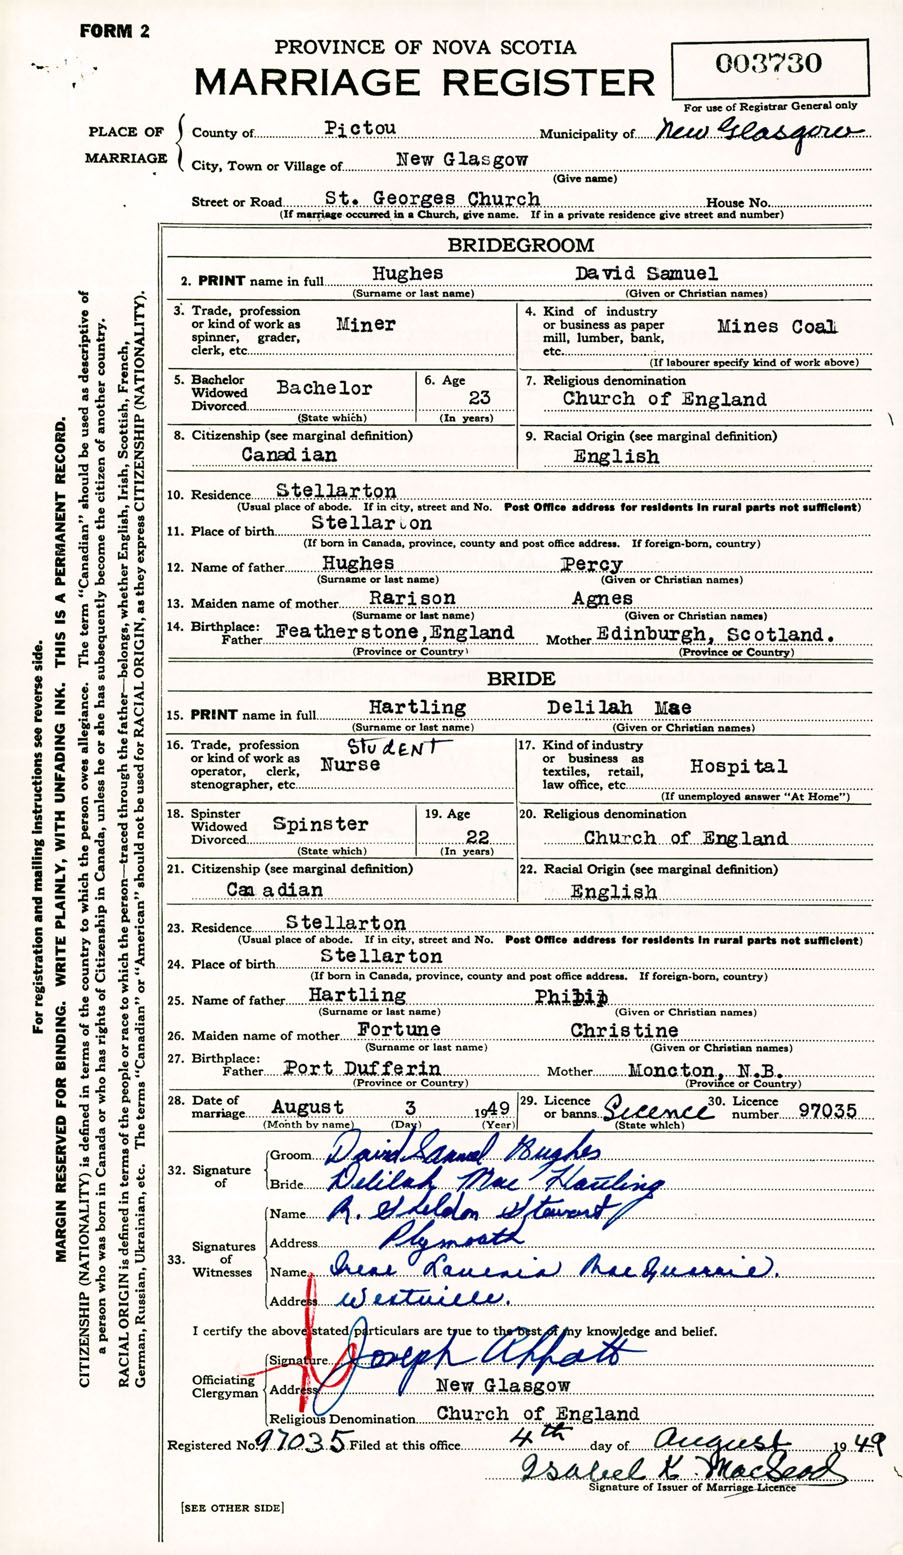 FORM 2
PROVINCE OF NOVA SCOTIA
MARRIAGE REGISTER
003730
For use of Registrar General only
PLACE OF MARRIAGE
County of Pictou Municipality of New Glasgow
City, Town or Village of New Glasgow
(Give name)
Street or Road St. Georges Church House No.
(If marriage occurred in a Church, give name. If in a private residence give street and number)
BRIDEGROOM
2. PRINT name in full Hughes David Samuel
(Surname or last name) (Given or Christian names)
3. Trade, profession or kind of work as spinner, grader, clerk, etc. Miner
4. Kind of industry or business as paper mill, lumber, bank, etc. Mines Coal
(If labourer specify kind of work above)
5. Bachelor Widowed Divorced Bachelor
(State which)
6. Age 23
(In years)
7. Religious denomination
Church of England
8. Citizenship (see marginal definition)
Canadian
9. Racial Origin (see marginal definition)
English
10. Residence Stellarton
(Usual place of abode. If in city, street and No. Post Office address for residents in rural parts not sufficient)
11. Place of birth Stellarton
(If born in Canada, province, county and post office address. If foreign-born, country)
12. Name of father Hughes Percy
(Surname or last name) (Given or Christian names)
13. Maiden name of mother Rarison Agnes
(Surname or last name) (Given or Christian names)
14. Birthplace: Father Featherstone, England Mother Edinburgh, Scotland.
(Province or Country) (Province or Country)
BRIDE
15. PRINT name in full Hartling Delilah Mae
(Surname or last name) (Given or Christian names)
16. Trade, profession or kind of work as operator, clerk, stenographer, etc. STUDENT Nurse
17. Kind of industry or business as textiles, retail, law office, etc. Hospital
(If unemployed answer "At Home")
18. Spinster Widowed Divorced Spinster
(State which)
19. Age 22
(In years)
20. Religious denomination
Church of England
21. Citizenship (see marginal definition)
Canadian
22. Racial Origin (see marginal definition)
English
23. Residence Stellarton
(Usual place of abode. If in city, street and No. Post Office address for residents in rural parts not sufficient)
24. Place of birth Stellarton
(If born in Canada, province, county and post office address. If foreign-born, country)
25. Name of father Hartling Philip
(Surname or last name) (Given or Christian names)
26. Maiden name of mother Fortune Christine
(Surname or last name) (Given or Christian names)
27. Birthplace: Father Port Dufferin Mother Moncton, N.B.
(Province or Country) (Province or Country)
28. Date of marriage August 3 1949
(Month by name) (Day) (Year)
29. Licence or banns Licence
(State which)
30. Licence number 97035
32. Signature of
Groom David Samuel Hughes
Bride Delilah Mae Hartling
33. Signatures of Witnesses
Name R. Sheldon Stewart
Address Plymouth
Name Irene Lavenia MacQuarrie.
Address Westville.
I certify the above stated particulars are true to the best of my knowledge and belief.
Officiating Clergyman
Signature Joseph
Address New Glasgow
Religious Denomination Church of England
Registered No. 97035 Filed at this office 4th day of August 1949
Isabel K. MacLeod
Signature of Issuer of Marriage Licence
[SEE OTHER SIDE]
For registration and mailing instructions see reverse side.
MARGIN RESERVED FOR BINDING. WRITE PLAINLY, WITH UNFADING INK. THIS IS A PERMANENT RECORD.
CITIZENSHIP (NATIONALITY) is defined in terms of the country to which the person owes allegiance. The term "Canadian" should be used as descriptive of
a person who was born in Canada or who has rights of Citizenship in Canada, unless he or she has subsequently become the citizen of another country.
RACIAL ORIGIN is defined in terms of the people or race to which the person—traced through the father—belongs, whether English, Irish, Scottish, French,
German, Russian, Ukrainian, etc. The terms "Canadian" or "American" should not be used for RACIAL ORIGIN, as they express CITIZENSHIP (NATIONALITY).